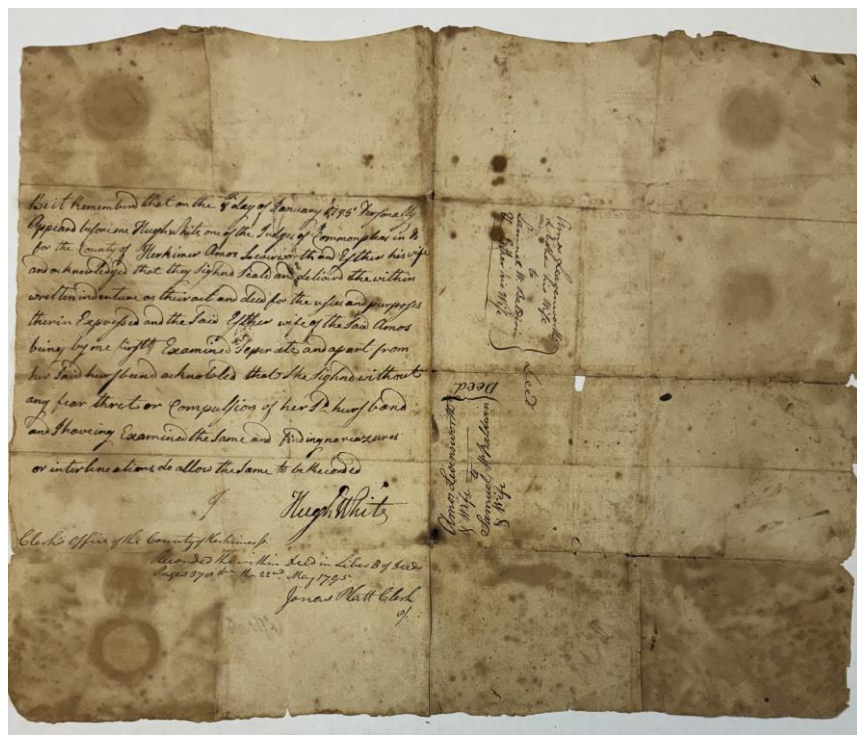 Be it Remembrd that on the 8th day of January 1795 Personally
Appeard before me Hugh White one of the Judges of Common pleas in &
for the County of Herkimer Amos and Esther his wife
and acknowledged that they Signd Seald and deliverd the within
written indenture as their act and deed for the uses and purposes
therin Expressed and the Said Esther wife of the Said Amos
being by me Examined Seperate and apart from
her Said husband that She Signd without
any fear thret or Compulsion of her Sd husband
and I haveing Examined the Same and finding no
or interlineations do allow the Same to be Recorded
Hugh White
Clerk's Office of the County of Herkimer ss
Recorded the within Deed in Liber B of Deeds
Pages the 22nd May 1795
Jonas Platt Clerk
Amos
& Esther his Wife
to
Samuel
& Esther his Wife
Deed
Deed
Amos Levensworth
& Wife
to
Samuel
& Wife